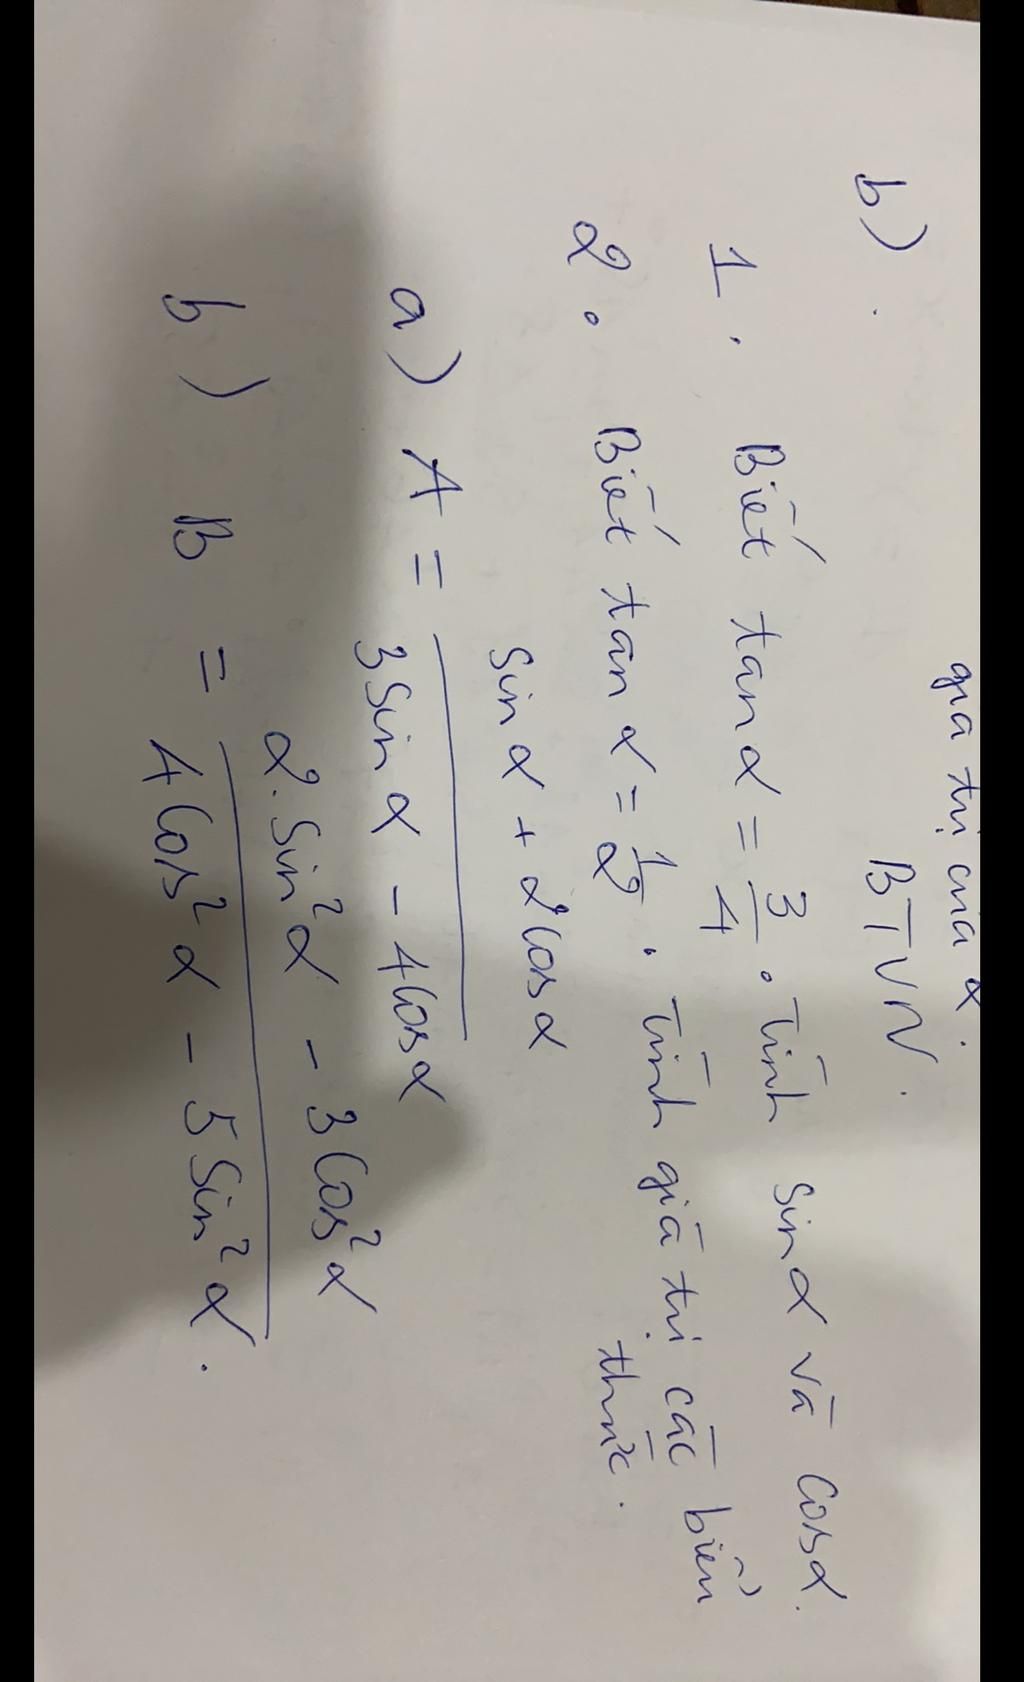 giá trị của α.
b).
BTVN.
1. Biết tanα = 3/4. Tính sinα và Cosα.
2. Biết tanα = 1/2. Tính giá trị các biểu
thức.
a) A = (Sinα + 2Cosα)/(3Sinα - 4Cosα)
b) B = (2.Sin²α - 3Cos²α)/(4Cos²α - 5Sin²α).